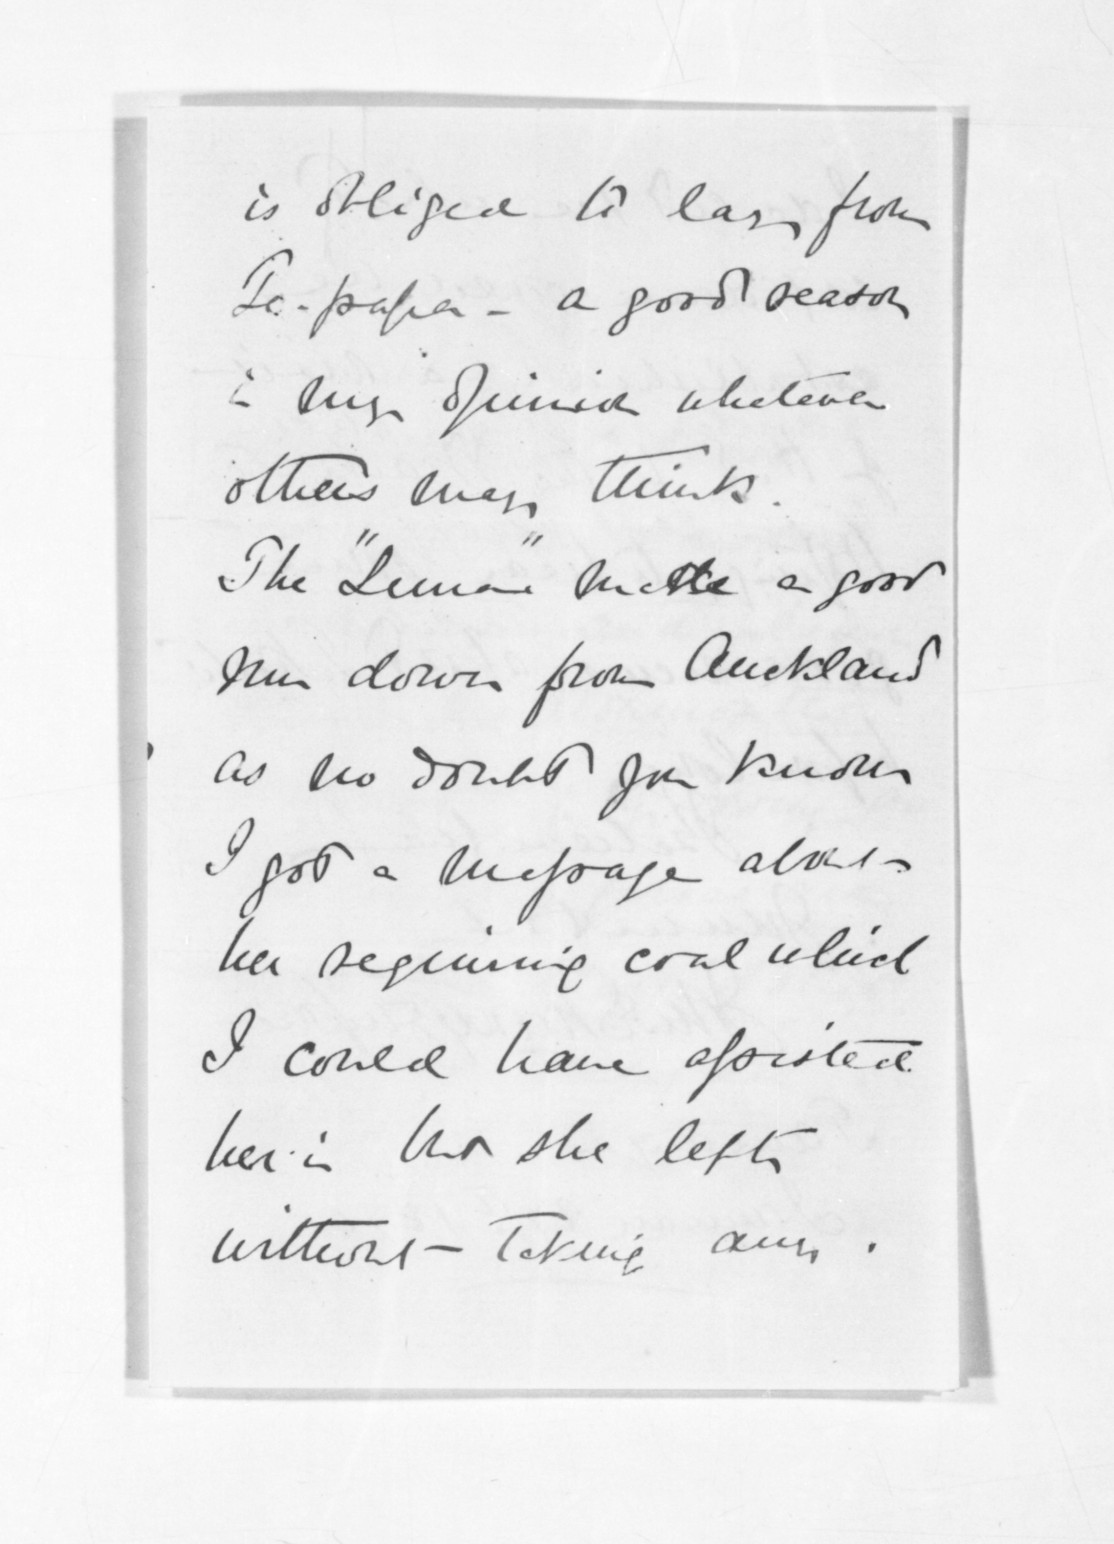 is obliged to lay from
To-paper - a good season
in my opinion whatever
others may think.
The "Luna" made a good
run down from Auckland
as no doubt you know
I got a message about
her requiring coal which
I could have assisted
her in but she left
without taking any.